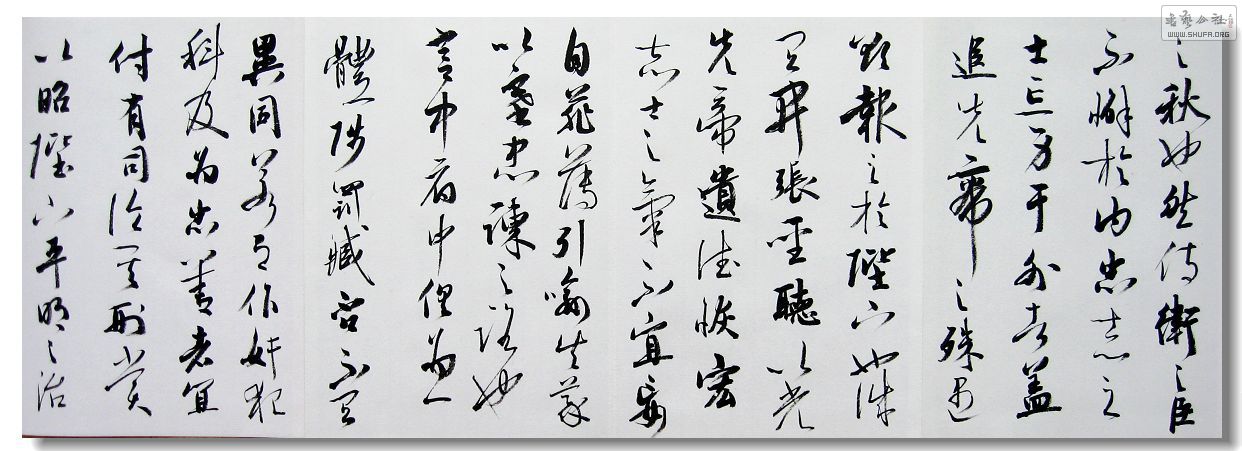 之秋也然侍衛之臣
不懈於内忠志之
士忘身于外者盖
追先帝之殊遇
欲報之於陛下也誠
宜開張聖聽以光
先帝遺德恢宏
志士之氣不宜妄
自菲薄引喻失義
以塞忠諫之路也
宫中府中俱为一
體陟罰臧否不宜
異同若有作奸犯
科及为忠善者宜
付有司论其刑賞
以昭陛下平明之治
書藝公社
WWW.SHUFA.ORG